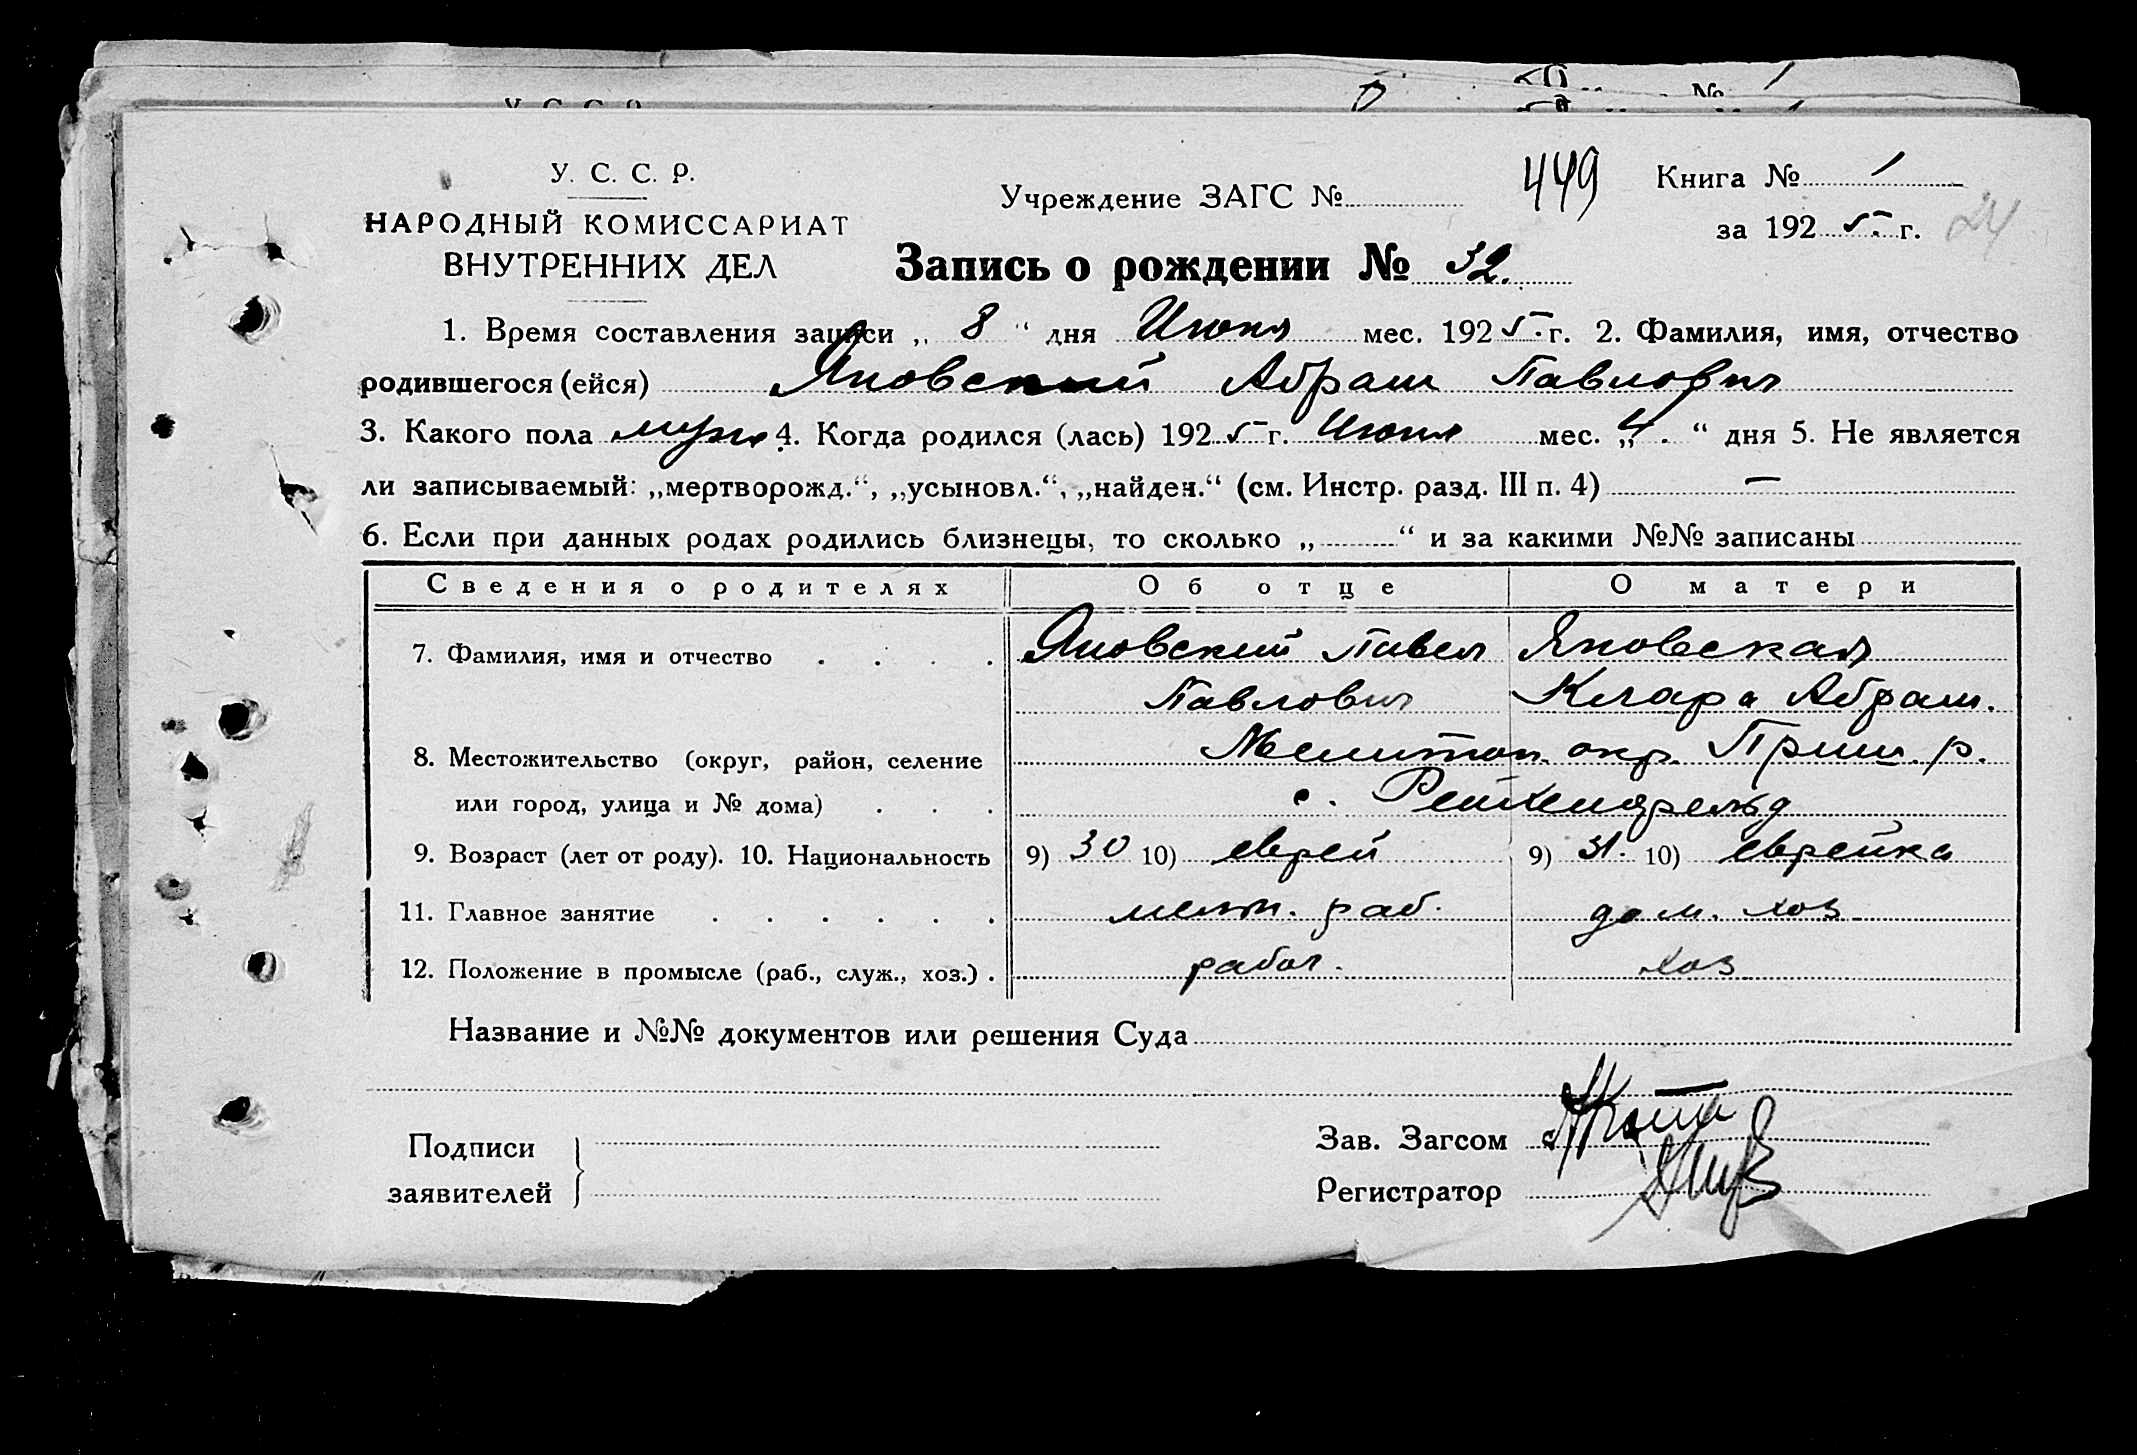 У. С. С. Р.
НАРОДНЫЙ КОМИССАРИАТ
ВНУТРЕННИХ ДЕЛ
Учреждение ЗАГС №
449
Книга № 1
за 1925 г.
24
Запись о рождении № 32.
1. Время составления записи „ 8 “ дня Июня мес. 1925 г. 2. Фамилия, имя, отчество
родившегося (ейся) Яновский Абрам Павлович
3. Какого пола муж 4. Когда родился (лась) 1925 г. Июня мес. „ 4. “ дня 5. Не является
ли записываемый: „мертворожд.“, „усыновл.“, „найден.“ (см. Инстр. разд. III п. 4) —
6. Если при данных родах родились близнецы, то сколько „ “ и за какими №№ записаны
Сведения о родителях Об отце О матери
7. Фамилия, имя и отчество . . . . Яновский Павел Яновская
Павлович Клара Абрам.
8. Местожительство (округ, район, селение Мелитоп. окр. Приш. р.
или город, улица и № дома) . . . с. Рейхенфельд
9. Возраст (лет от роду). 10. Национальность 9) 30 10) еврей 9) 31. 10) еврейка
11. Главное занятие . . . . . . раб. дом. хоз
12. Положение в промысле (раб., служ., хоз.) . рабоч. хоз
Название и №№ документов или решения Суда
Подписи
заявителей
Зав. Загсом
Регистратор